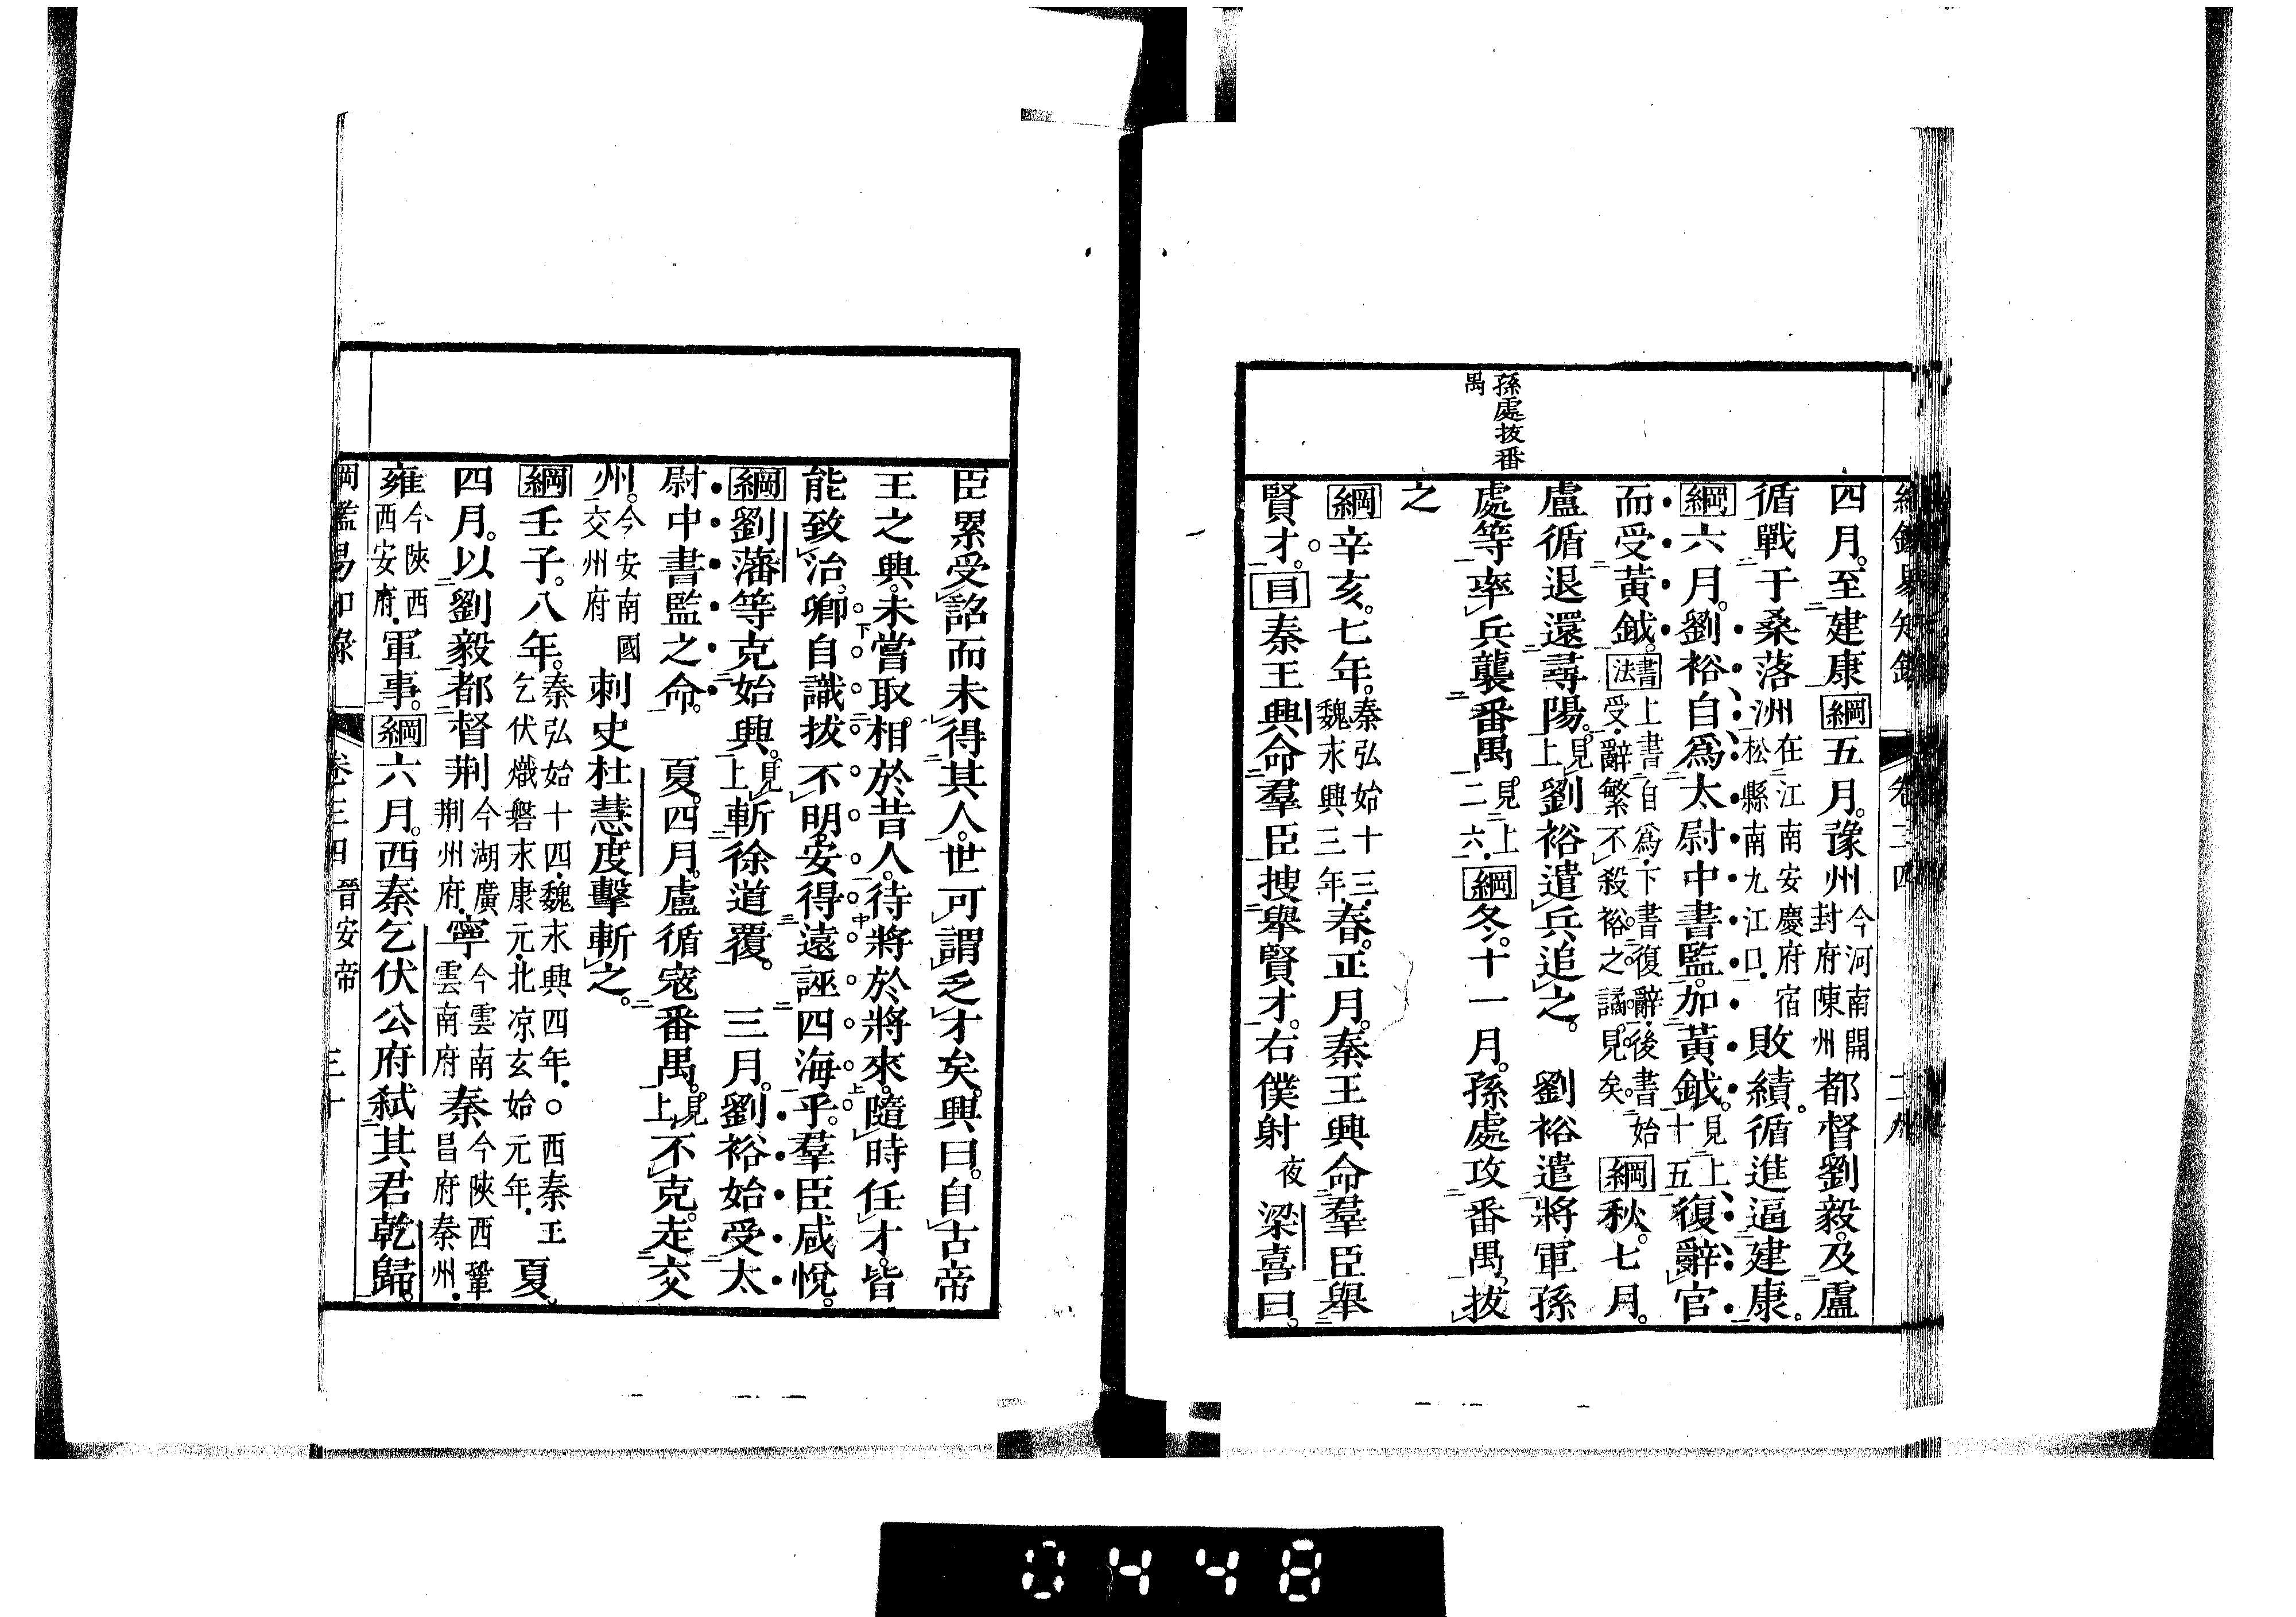 孫處拔番
禺
四月。至建康綱五月。豫州今河南開封府陳州都督劉毅。及盧
循戰于桑落洲在江南安慶府宿松縣南九江口。敗績。循進逼建康。
綱六月。劉裕自爲太尉中書監。加黃鉞。見上十五復辭官
而受黃鉞。書法上書自爲。下書復辭。後書始受。辭繁不殺。裕之譎。見矣。綱秋。七月。
盧循退還尋陽。見上劉裕遣兵追之。劉裕遣將軍孫
處等率兵襲番禺。見上二六綱冬。十一月。孫處攻番禺。拔
之
綱辛亥。七年。秦弘始十三。魏永興三年。春。正月。秦王興命羣臣舉
賢才。目秦王興命羣臣搜舉賢才。右僕射夜梁喜曰。
臣累受詔而未得其人。世可謂乏才矣。興曰。自古帝
王之興。未嘗取相於昔人。待將於將來。隨時任才。皆
能致治。卿自識拔不明。安得遠誣四海乎。羣臣咸悅。
綱劉藩等克始興。見上斬徐道覆。三月。劉裕始受太
尉中書監之命。夏。四月。盧循寇番禺。見上不克。走交
州。今安南國交州府刺史杜慧度擊斬之。
綱壬子。八年。秦弘始十四。魏永興四年。○西秦王乞伏熾磐永康元。北凉玄始元年。夏。
四月。以劉毅都督荆今湖廣荆州府。寧今雲南雲南府秦今陝西鞏昌府秦州。
雍今陝西西安府。軍事。綱六月。西秦乞伏公府弑其君乾歸。
綱鑑易知錄 卷三四 晉安帝 三十